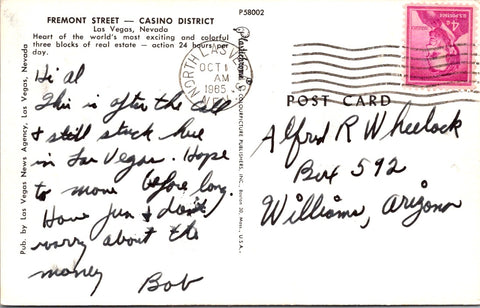 P58002
FREMONT STREET — CASINO DISTRICT
Las Vegas, Nevada
Heart of the world's most exciting and colorful
three blocks of real estate - action 24 hours per
day.
Pub. by Las Vegas News Agency, Las Vegas, Nevada
Hi Al
This is after the call
& still stuck here
in Las Vegas. Hope
to move before long.
Have fun & don't
worry about the
money
Bob
Plastichrome
COLOURPICTURE PUBLISHERS, INC., Boston 30, Mass., U.S.A.
NORTH LAS VEGAS
OCT 1
AM
1965
NEV.
4¢
POST CARD
Alfred R Wheelock
Box 592
Williams, Arizona